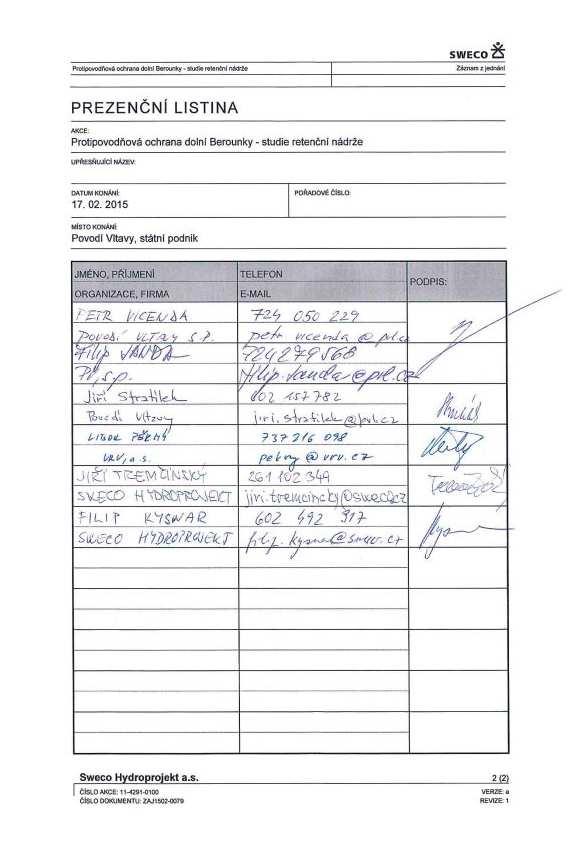 SWECO
Protipovodňová ochrana dolní Berounky - studie retenční nádrže Záznam z jednání
PREZENČNÍ LISTINA
AKCE:
Protipovodňová ochrana dolní Berounky - studie retenční nádrže
UPŘESŇUJÍCÍ NÁZEV:
DATUM KONÁNÍ: POŘADOVÉ ČÍSLO:
17. 02. 2015
MÍSTO KONÁNÍ:
Povodí Vltavy, státní podnik
JMÉNO, PŘÍJMENÍ TELEFON PODPIS:
ORGANIZACE, FIRMA E-MAIL
PETR VICENDA 724 050 229
POVODÍ VLTAVY S.P. petr vicenda @ pvl.cz
Filip VANDA 724279568
PV, s.p. filip.vanda@pvl.cz
Jiří Stratílek 602 157782
Povodí Vltavy jiri.stratilek@pvl.cz
LIBOR PĚKNÝ 737 216 098
VRV, a.s. pekny @ vrv.cz
JIŘÍ TREMČINSKÝ 261 102 349
SWECO HYDROPROJEKT jiri.tremcinsky@sweco.cz
FILIP KYSNAR 602 492 317
SWECO HYDROPROJEKT
Sweco Hydroprojekt a.s. 2 (2)
ČÍSLO AKCE: 11-4291-0100 VERZE: a
ČÍSLO DOKUMENTU: ZAJ1502-0079 REVIZE: 1